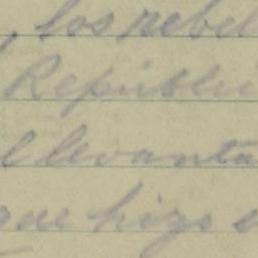 , los rebel
Repúbli
l levanta
que hizo e